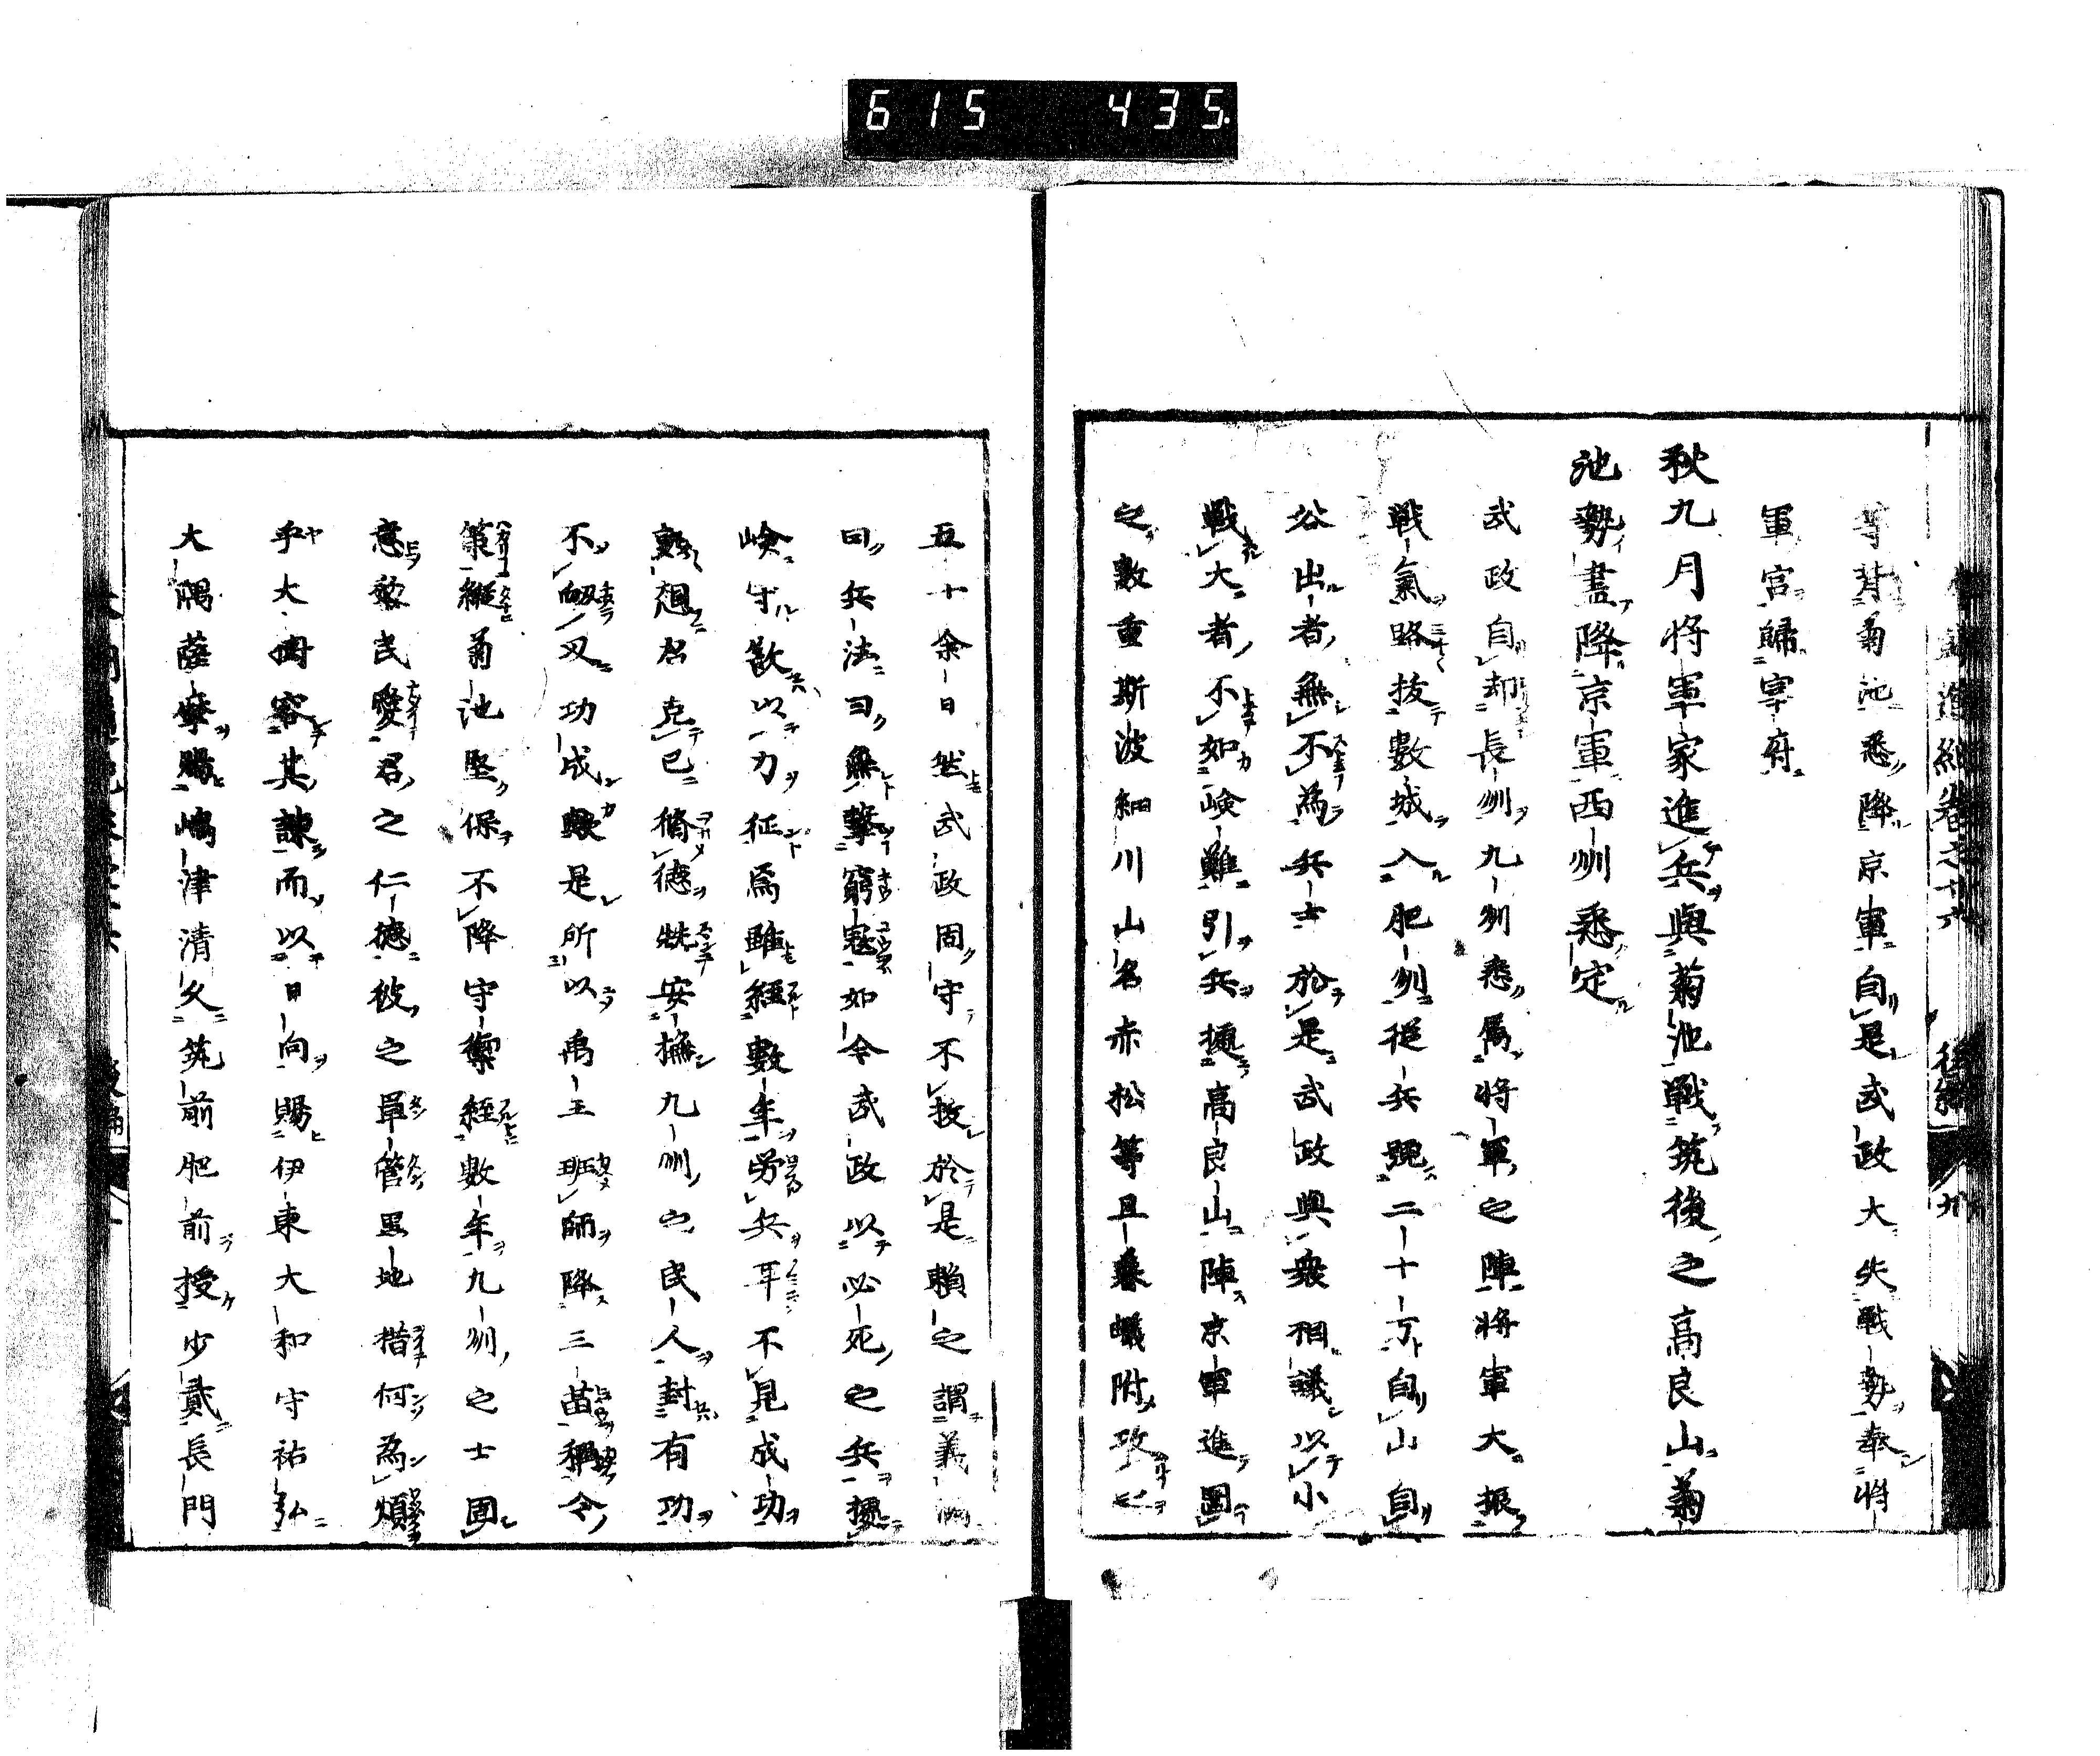 615 435.
等背菊池悉降京軍自是武政大失戦勢奉將
軍宮歸宰府
秋九月將軍家進兵與菊池戰筑後之高良山菊
池勢盡降京軍西州悉定
武政自却長州九州悉屬將軍之陣將軍大振
戦氣路抜數城入肥州従兵既二十万自山自
谷出者無不為兵士於是武政與衆相議以小
戰大者不如嶮難引兵據高良山陣京軍進圍
之數重斯波細川山名赤松等且暮蟻附攻之
五十余日然武政固守不拔於是頼之謂義満
曰兵法曰無撃窮寇如今武政以必死之兵據
嶮守歆以力征焉雖經數年労兵卒不見成功
想君克已脩徳兟安撫九州之民人封有功
不又功成是所以禹王班師降三苗稱令
策縦菊池堅保不降守禦經數年九州之士
意黎民愛君之仁徳彼之單管黒地措何為煩
乎大樹容其諌而以日向賜伊東大和守祐弘
大隅薩摩賜嶋津清久筑前肥前授少貳長門